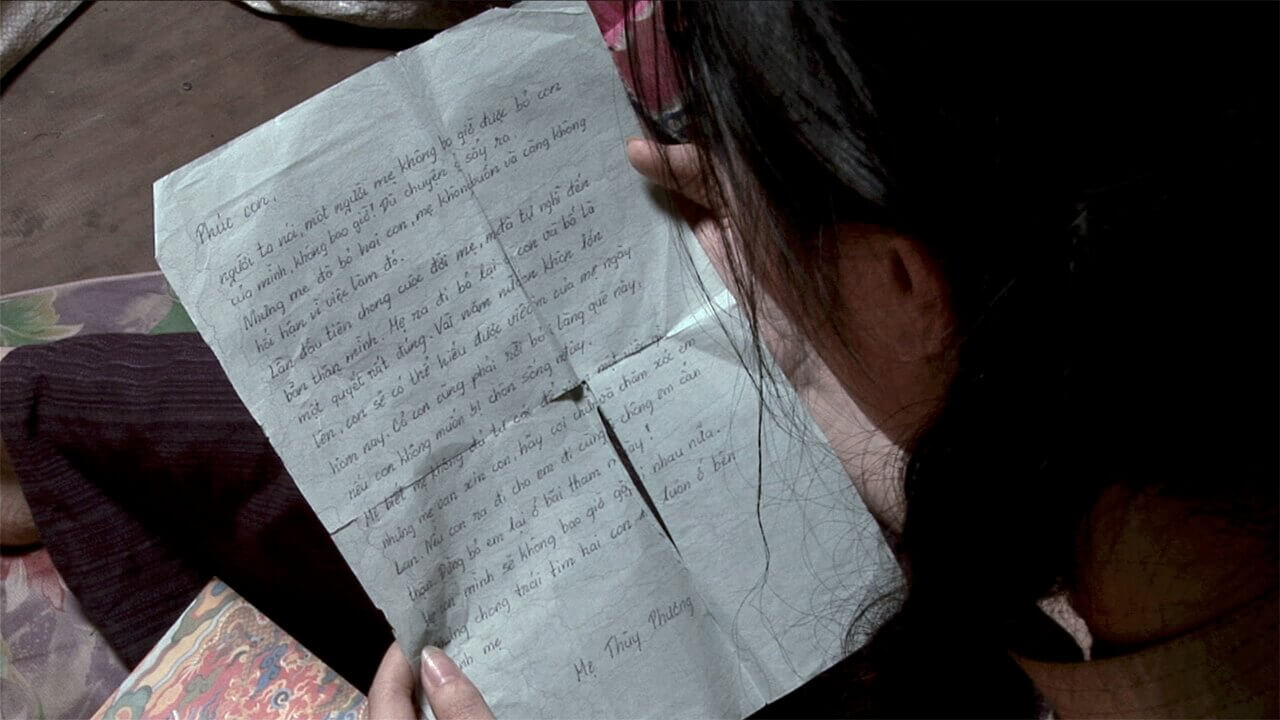 Phúc con,
người ta nói, một người mẹ không bao giờ được bỏ con
của mình, không bao giờ! Dù chuyện gì sảy ra.
Nhưng mẹ đã bỏ hai con, mẹ không buồn và cũng không
hối hận vì việc làm đó.
Lần đầu tiên chong cuộc đời mẹ, mẹ đã tự nghĩ đến
bản thân mình. Mẹ ra đi bỏ lại con và bố là
một quyết rất đúng. Vài năm nữa khi lớn
lên, con sẽ có thể hiểu được việc làm của mẹ ngày
hôm nay. Cả con cũng phải rời bỏ làng quê này,
nếu con không muốn bị chôn sống ở đây.
Mẹ biết mẹ không đủ tư cách để một việc gì
nhưng mẹ van xin con, hãy coi chừng và chăm xóc em
Lan. Nếu con ra đi, cho em đi cùng, chông em cẩn
thận. Đừng bỏ em lại ở bãi tham này!
Mẹ con mình sẽ không bao giờ gặp nhau nữa.
Nhưng chong trái tim hai con luôn ở bên
cạnh mẹ
Mẹ Thúy Phương